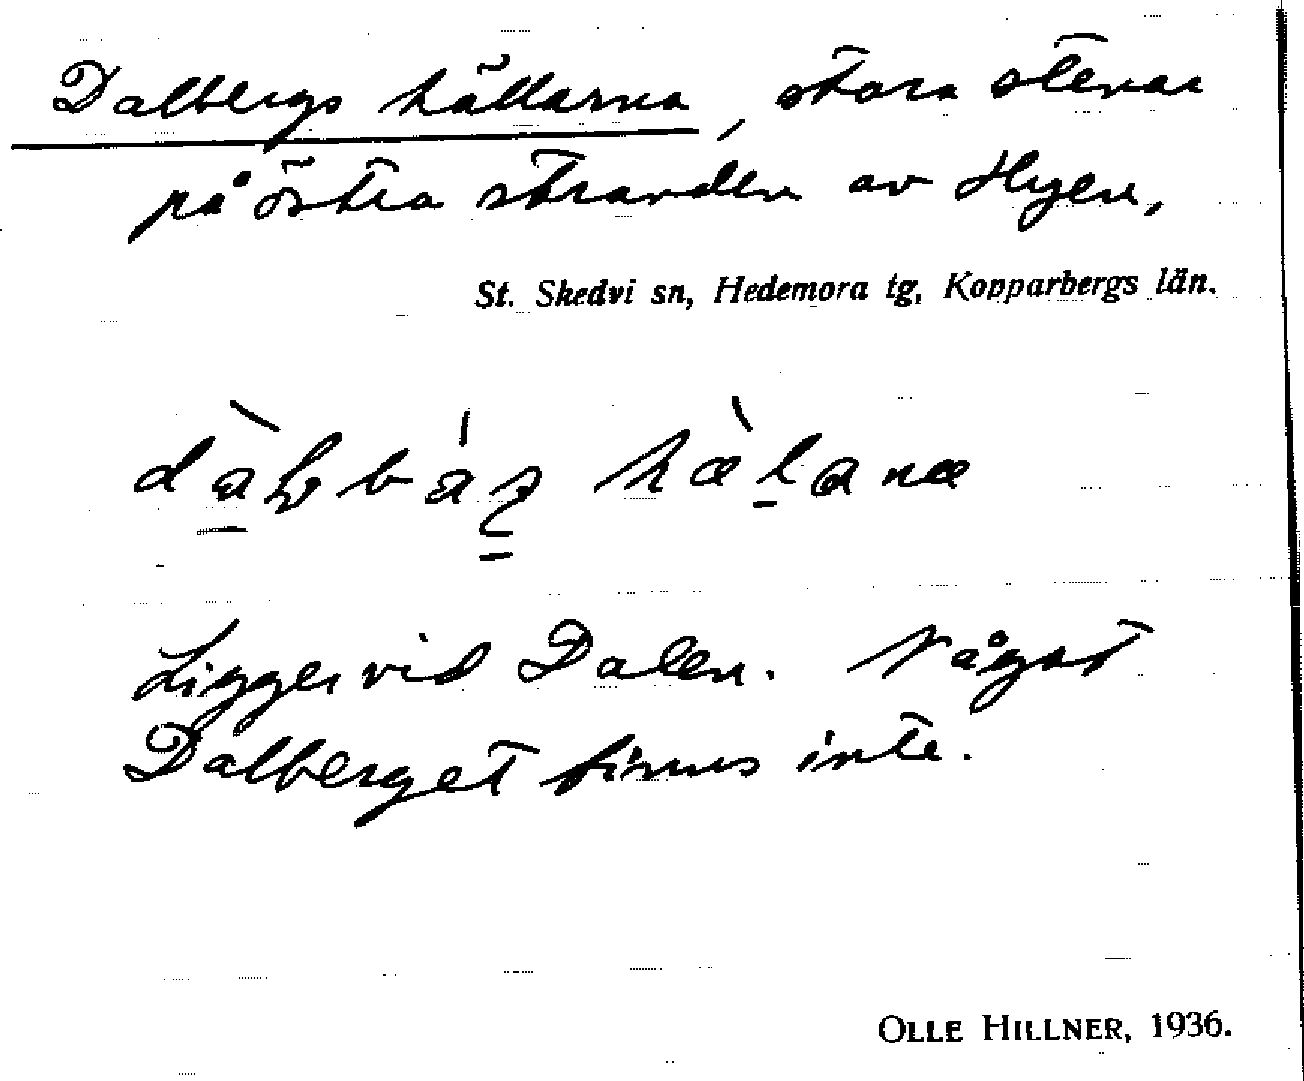 Dalbergs hällarna, stora stenar
på östra stranden av Hyen,
St. Skedvi sn, Hedemora tg, Kopparbergs län.
Ligger vid Dalen. Något
Dalberget finns inte.
OLLE HILLNER, 1936.